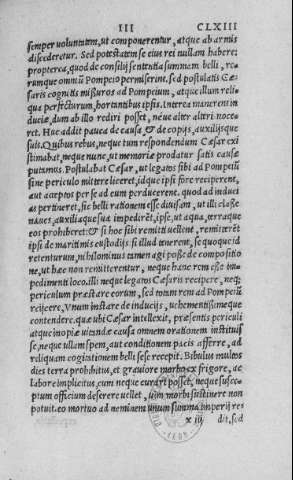 III CLXIII
semper voluntatem, ut componerentur, atque ab armis
discederetur. Sed potestatem se eius rei nullam habere:
propterea, quod de consilij sententia summam belli, re-
rumque omniũ Pompeio permiserint. sed postulatis Cæ
saris cognitis missuros ad Pompeium, atque illum reli-
qua perfecturum, hortantibus ipsis. Interea manerent in
duciæ, dum ab illo rediri posset, neue alter alteri noce-
ret. Huc addit pauca de causa, & de copijs, auxilijsque
suis. Quibus rebus, neque tum respondendum Cæsar exi
stimabat, neque nunc, ut memoriæ prodatur satis causæ
putamus. Postulabat Cæsar, ut legatos sibi ad Pompeiũ
sine periculo mittere liceret, idque ipsi fore reciperent,
aut acceptos per se ad eum perducerent. quod ad induci
as pertineret, sic belli rationem esse diuisam, ut illi classe
naues, auxiliaque sua impedirẽt, ipse, ut aqua, terraque
eos prohiberet: & si hoc sibi remitti uellent, remitterẽt
ipsi de maritimis custodijs. si illud tenerent, se quoque id
retenturum, nihilominus tamen agi posse de compositio
ne, ut hæc non remitterentur, neque hanc rem esse im-
pedimenti loco. illi neque legatos Cæsaris recipere, neq;
periculum præstare eorum, sed totam rem ad Pompeiũ
reijcere, Vnum instare de inducijs, uehementissimeque
contendere. quos ubi Cæsar intellexit, præsentis periculi
atque inopiæ uitandæ causa omnem orationem instituis
se, neque ullam spem, aut conditionem pacis afferre, ad
reliquam cogitationem belli sese recepit. Bibulus multos
dies terra prohibitus, et grauiore morbo ex frigore, ac
labore implicitus, cum neque curari posset, neque susce-
ptum officium deserere uellet, uim morbi sustinere non
potuit. eo mortuo ad neminem unum summa imperij res
x iij dit, sed